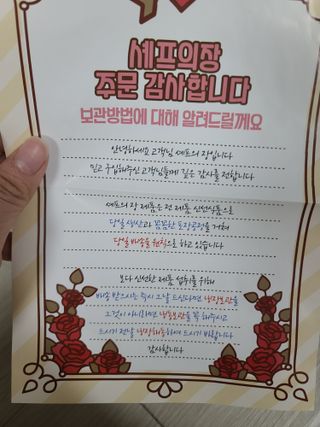 셰프의장
주문 감사합니다
보관방법에 대해 알려드릴게요
안녕하세요 고객님 셰프의 장입니다
믿고 구입해주신 고객님들께 깊은 감사를 전합니다
셰프의 장 제품은 전 제품 신선식품으로
당일 생산과 꼼꼼한 포장공정을 거쳐
당일 배송을 원칙으로 하고 있습니다
보다 신선한 제품 섭취를 위해
배송 받으시는 즉시 그날 드신다면 냉장보관을
그것이 아니라면 냉동보관을 꼭 해주시고
드시기 전날 냉장해동하여 드시기 바랍니다
감사합니다